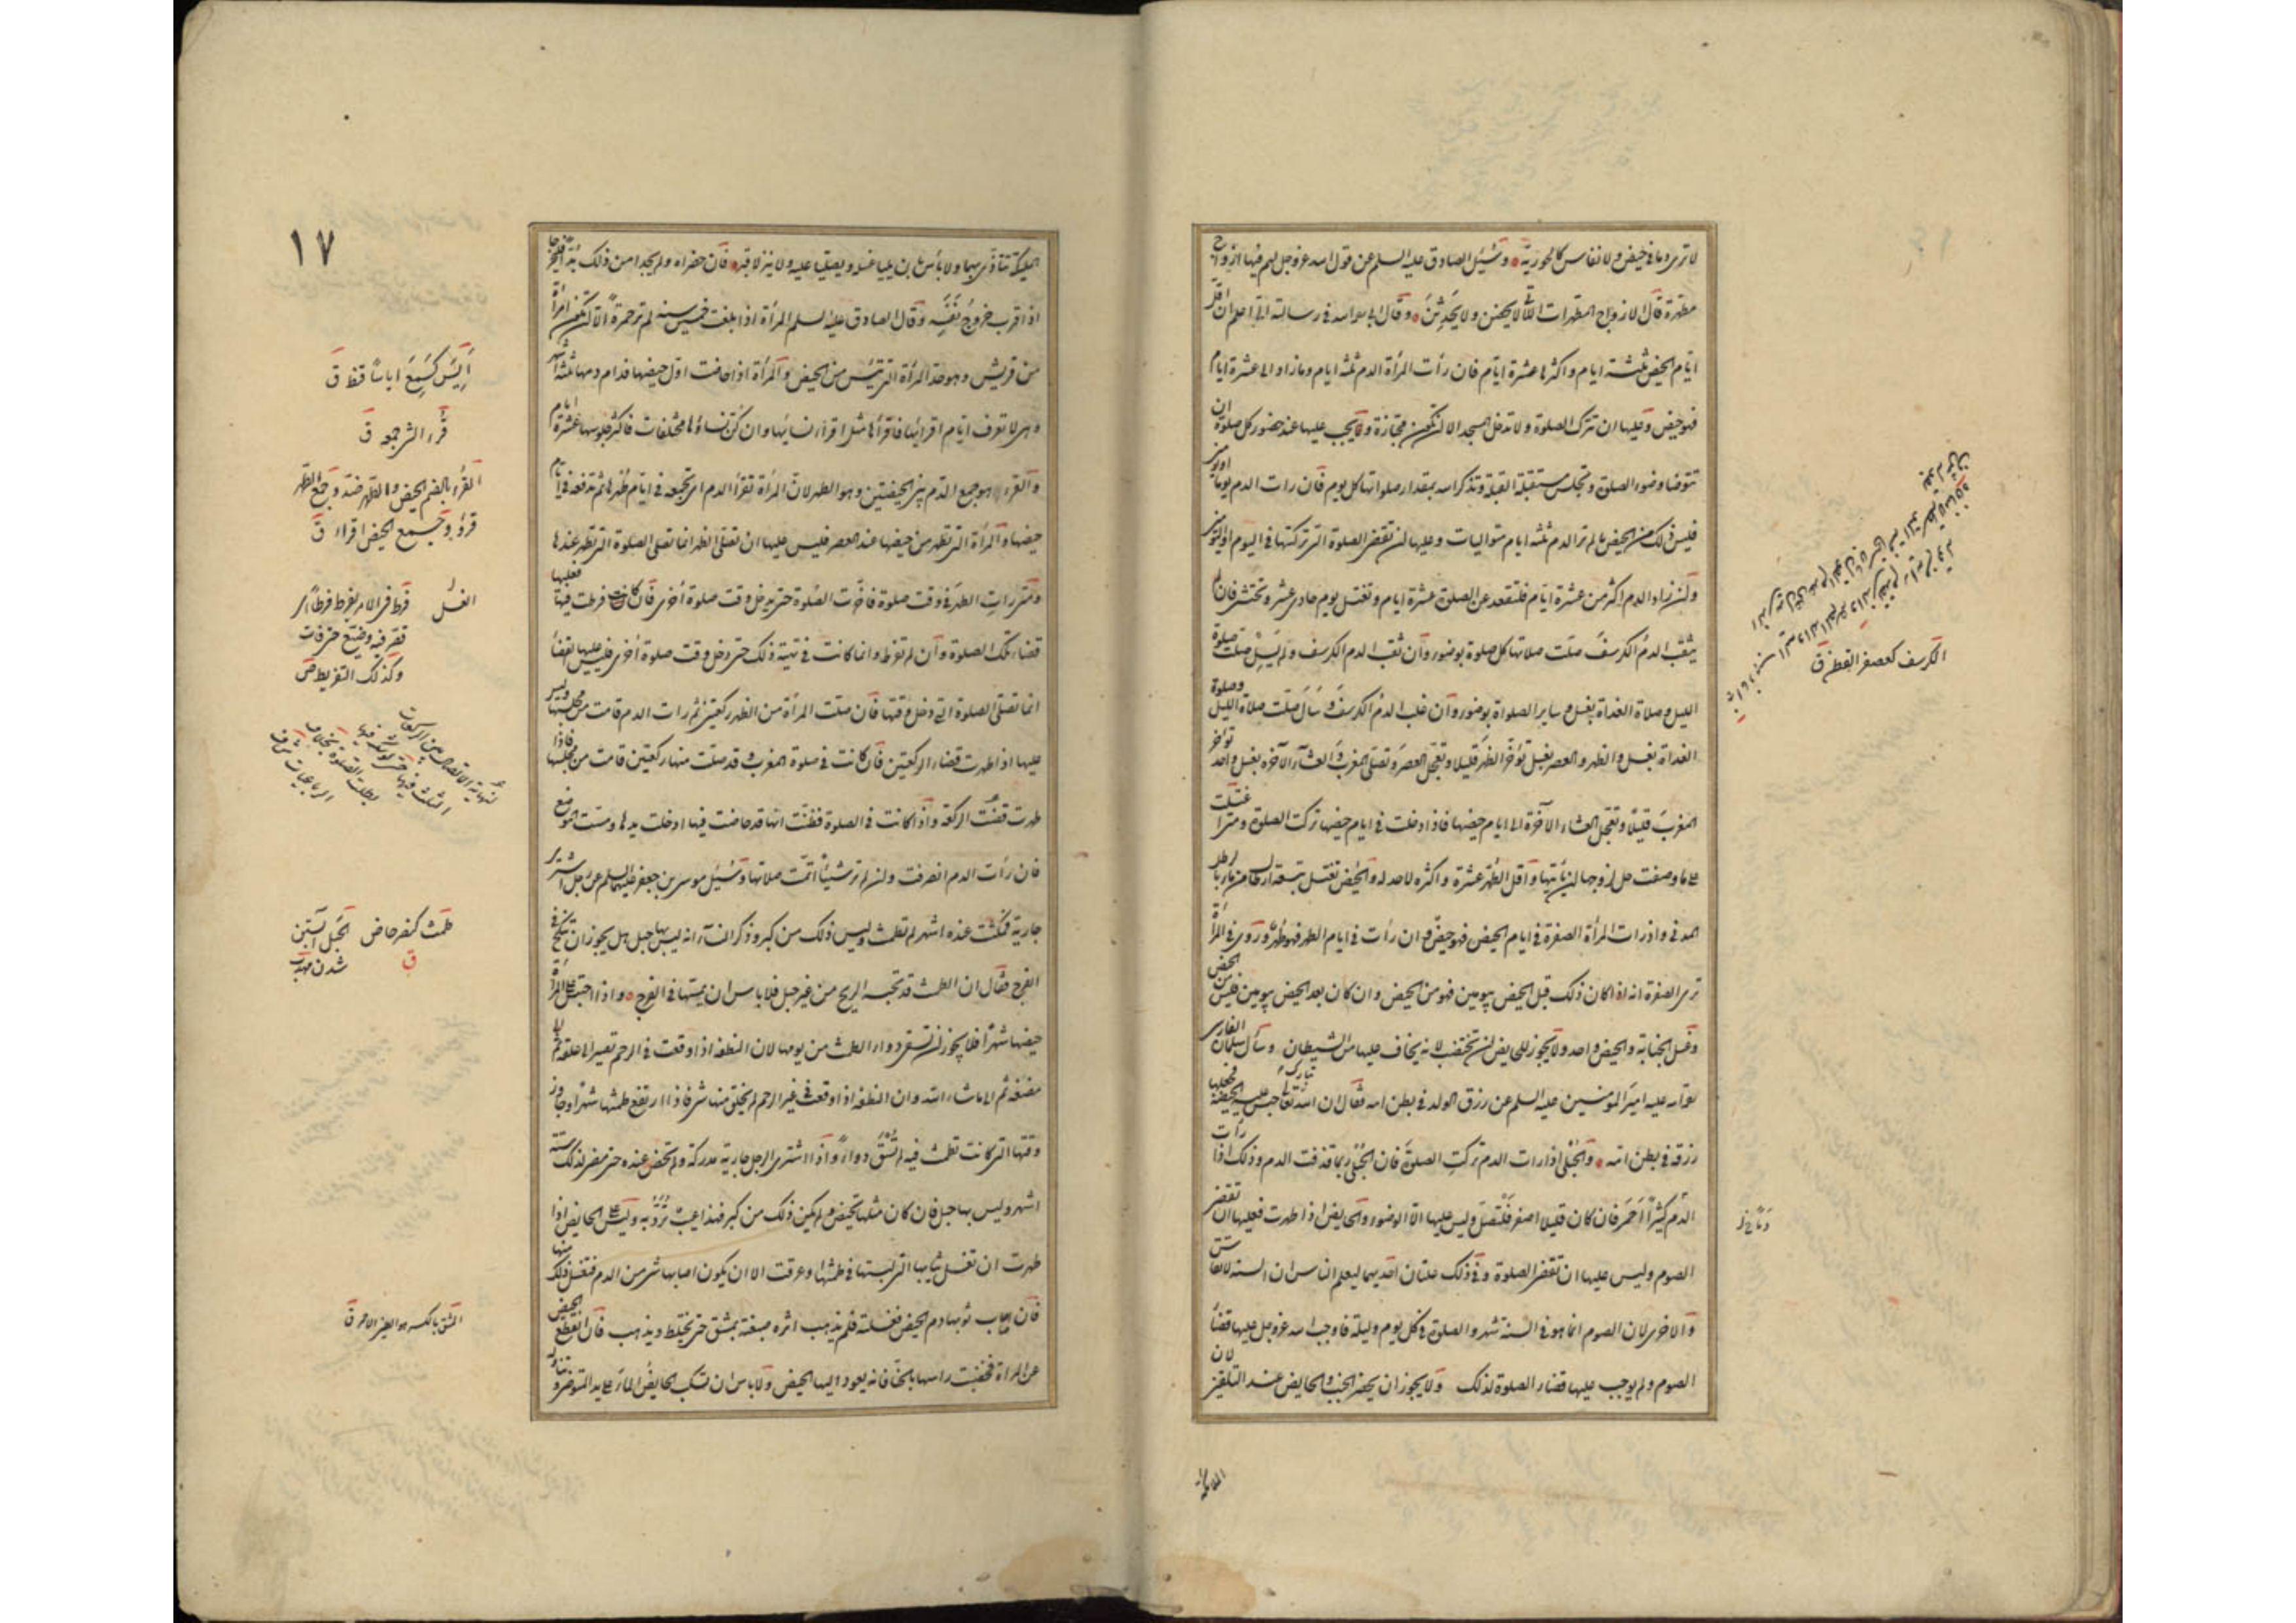 لا ترى دما في حيض ولا نفاس كالحورية وسئل الصادق عليه السلم عن قول الله عز وجل لهم فيها ازواج
مطهرة قال الازواج المطهرات اللاتي لا يحضن ولا يحدثن وقال ابي رحمه الله في رسالته الي اعلم ان اقل
ايام الحيض ثلثة ايام واكثرها عشرة ايام فان رات المرأة الدم ثلثة ايام وما زاد الى عشرة ايام
فهو حيض وعليها ان تترك الصلوة ولا تدخل المسجد الا ان تكون مجتازة ويجب عليها عند حضور كل صلوة ان
تتوضا وضوء الصلوة وتجلس مستقبلة القبلة وتذكر الله بمقدار صلواتها كل يوم فان رات الدم يوما او يومين
فليس ذلك من الحيض ما لم تر الدم ثلثة ايام متواليات وعليها ان تقضى الصلوة التى تركتها فى اليوم او اليومين
وان زاد الدم اكثر من عشرة ايام فلتقعد عن الصلوة عشرة ايام وتغتسل يوم حادى عشر وتحتشى فان لم
يثقب الدم الكرسف صلت صلاتها كل صلوة بوضوء وان ثقب الدم الكرسف ولم يسل صلت صلوة
الليل وصلاة الغداة بغسل وساير الصلواة بوضوء وان غلب الدم الكرسف وسال صلت صلاة الليل وصلوة
الغداة بغسل والظهر والعصر بغسل تؤخر الظهر قليلا وتعجل العصر وتصلى المغرب والعشاء الآخرة بغسل واحد تؤخر
المغرب قليلا وتعجل العشاء الآخرة الى ايام حيضها فاذا دخلت فى ايام حيضها تركت الصلوة ومتى اغتسلت
على ما وصفت حل لزوجها ان ياتيها واقل الطهر عشرة واكثره لا حد له والحايض تغتسل بتسعة ارطال من ماء بالرطل
المدنى واذا رات المرأة الصفرة فى ايام الحيض فهو حيض وان رات فى ايام الطهر فهو طهر وروى فى المرأة
ترى الصفرة انه اذا كان ذلك قبل الحيض بيومين فهو من الحيض وان كان بعد الحيض بيومين فليس من الحيض
وغسل الجنابة والحيض واحد ولا يجوز للحايض ان تختضب لانه يخاف عليها من الشيطان وسأل سلمان الفارسى
امير المؤمنين عليه السلم عن رزق الولد فى بطن امه فقال ان الله تبارك وتعالى حبس عليه الحيضة فجعلها
رزقه فى بطن امه والحبلى اذا رات الدم تركت الصلوة فان الحبلى ربما قذفت الدم وذلك اذا رأت
الدم كثيرا احمر فان كان قليلا اصفر فلتصل وليس عليها الا الوضوء والحايض اذا طهرت فعليها ان تقضى
الصوم وليس عليها ان تقضى الصلوة وفى ذلك علتان احديهما ليعلم الناس ان السنة لا تقاس
والاخرى لان الصوم انما هو فى السنة شهر والصلوة فى كل يوم وليلة فاوجب الله عز وجل عليها قضاء
الصوم ولم يوجب عليها قضاء الصلوة لذلك ولا يجوز ان يحضر الجنب والحايض عند التلقين لان
الكرسف كعصفر القطن ق
الملئكة تتاذى بهما ولا باس بان يليا غسله ويصليا عليه ولا ينزلا قبره فان حضراه ولم يجدا من ذلك بدا فليخرجا
اذا قرب خروج نفسه وقال الصادق عليه السلم المرأة اذا بلغت خمسين سنة لم تر حمرة الا ان تكون امرأة
من قريش وهو حد المرأة التى تيئس من الحيض والمرأة اذا حاضت اول حيضها فدام دمها ثلثة اشهر
وهى لا تعرف ايام اقرائها فاقراؤها مثل اقراء نسائها وان كن نساؤها مختلفات فاكثر جلوسها عشرة ايام
والقرء هو جمع الدم بين الحيضتين وهو الطهر لان المرأة تقرأ الدم اى تجمعه فى ايام طهرها ثم تدفعه فى ايام
حيضها والمرأة التى تطهر من حيضها عند العصر فليس عليها ان تصلى الظهر انما تصلى الصلوة التى تطهر عندها
ومتى رات الطهر فى وقت صلوة فاخرت الصلوة حتى يدخل وقت صلوة اخرى فان كانت فرطت فيها فعليها
قضاء تلك الصلوة وان لم تفرط وانما كانت فى تهيئة ذلك حتى دخل وقت صلوة اخرى فليس عليها القضاء
انما تصلى الصلوة التى دخل وقتها فان صلت المرأة من الظهر ركعتين ثم رات الدم قامت من مجلسها وليس
عليها اذا طهرت قضاء الركعتين فان كانت فى صلوة المغرب وقد صلت منها ركعتين قامت من مجلسها فاذا
طهرت قضت الركعة واذا كانت فى الصلوة فظنت انها قد حاضت فيها ادخلت يدها ومست الموضع
فان رأت الدم انصرفت وان لم تر شيئا اتمت صلاتها وسئل موسى بن جعفر عليهما السلم عن رجل اشترى
جارية فمكثت عنده اشهر لم تطمث وليس ذلك من كبر وذكر النساء انه ليس بها حبل هل يجوز ان تنكح فى
الفرج فقال ان الطمث قد تحبسه الريح من غير حبل فلا باس ان يمسها فى الفرج واذا احتبس على المرأة
حيضها شهرا فلا يجوز ان تسقى دواء الطمث من يومها لان النطفة اذا وقعت فى الرحم تصير الى علقة ثم الى
مضغة ثم الى ما شاء الله وان النطفة اذا وقعت فى غير الرحم لم يخلق منها شئ فاذا ارتفع طمثها شهرا وجاوز
وقتها التى كانت تطمث فيه لم تسق دواء واذا اشترى الرجل جارية مدركة ولم تحض عنده حتى مضى لذلك ستة
اشهر وليس بها حبل فان كان مثلها تحيض ولم يكن ذلك من كبر فهذا عيب ترد به وليس على الحايض اذا
طهرت ان تغسل ثيابها التى لبستها فى طمثها وعرقت الا ان يكون اصابها شئ من الدم فتغسل ذلك منها
فان اصاب ثوبها دم الحيض فغسلته فلم يذهب اثره صبغته بمشق حتى يختلط ويذهب فان انقطع الحيض
عن المرأة فخضبت راسها بالحنا فانه يعود اليها الحيض ولا باس ان تسكب الحايض الماء على يد المتوضى وتناوله
١٧
أيس كسمع اياسا قنط ق
قرء الشئ جمعه ق
القرء بالضم الحيض والطهر ضد وجمع الطهر
قروء وجمع الحيض اقراء ق
فرط فى الامر يفرط فرطا اى
قصر فيه وضيع حتى فات
وكذلك التفريط ص
طمث كنصر حاض
الحبل آبستن
شدن مهذب
ق
المشق بالكسر هو الطين الاحمر ق